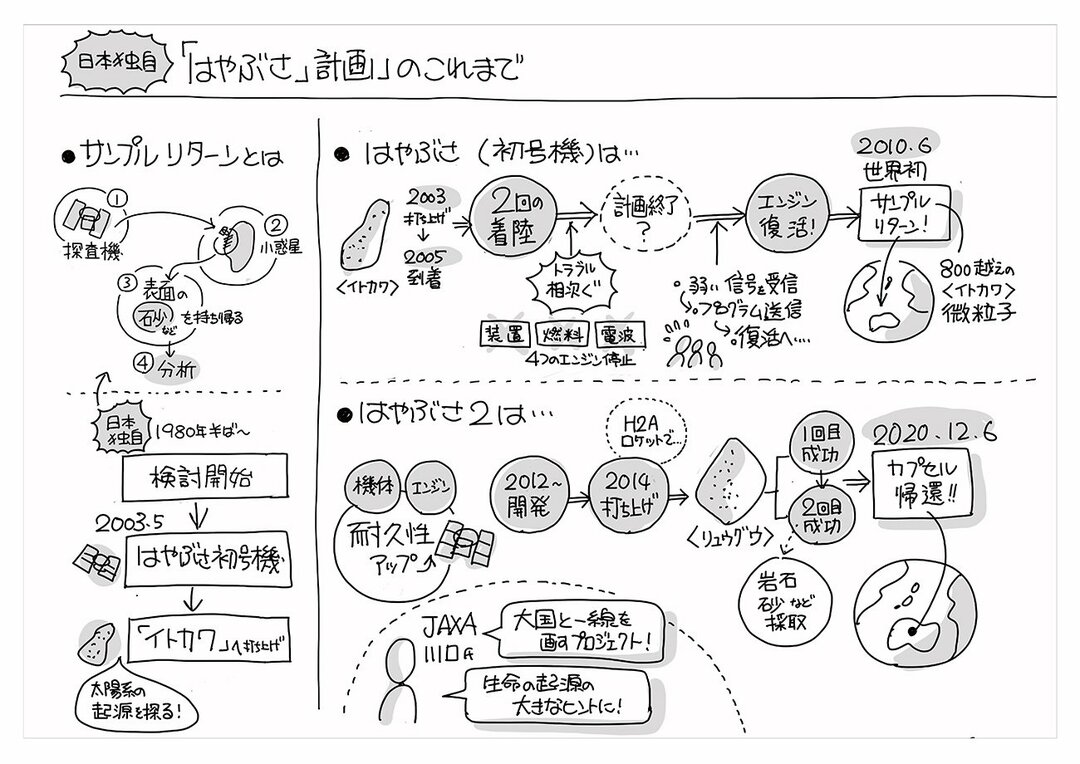 日本独自
「はやぶさ」計画」のこれまで
● サンプルリターンとは
①
探査機
②
小惑星
③
表面の
石砂
など
を持ち帰る
④
分析
日本
独自
1980年半ば〜
検討開始
2003.5
はやぶさ初号機
「イトカワ」へ打ち上げ
太陽系の
起源を探る!
● はやぶさ (初号機)は…
〈イトカワ〉
2003
打ち上げ
2005
到着
2回の
着陸
トラブル
相次ぐ
装置 燃料 電波
4つのエンジン停止
計画終了
?
・弱い信号を受信
・プログラム送信
・復活へ….
エンジン
復活!
2010.6
世界初
サンプル
リターン!
800越えの
〈イトカワ〉
微粒子
● はやぶさ2は…
機体 エンジン
耐久性
アップ
2012〜
開発
H2A
ロケットで…
2014
打ち上げ
〈リュウグウ〉
1回目
成功
2回目
成功
岩石
砂など
採取
2020.12.6
カプセル
帰還!!
JAXA
川口氏
大国と一線を
画すプロジェクト!
生命の起源の
大きなヒントに!